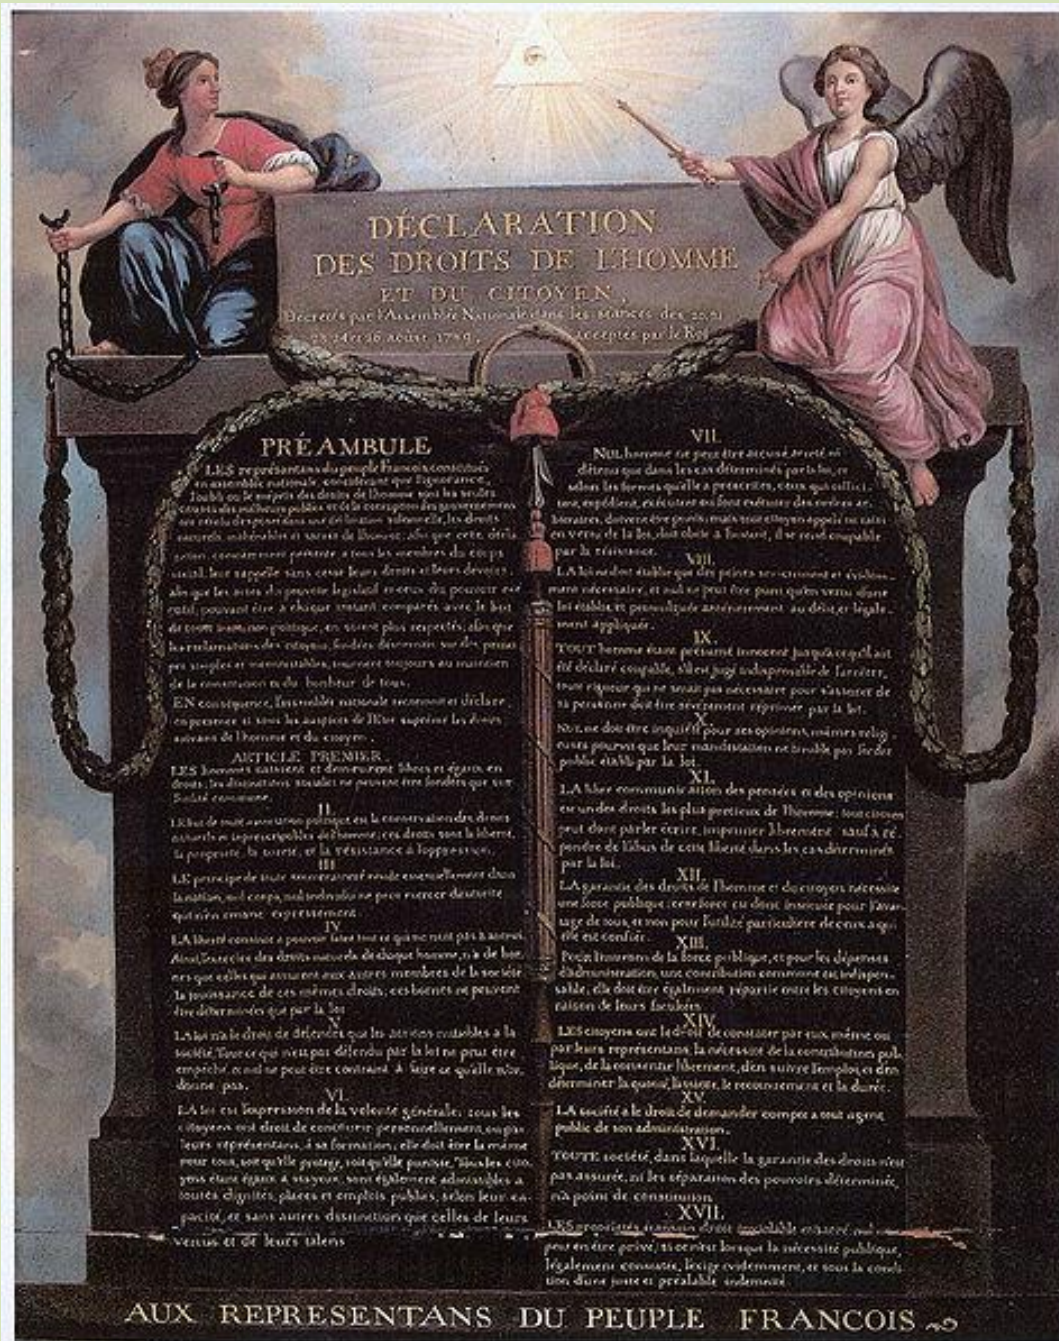 DÉCLARATION
DES DROITS DE L'HOMME
ET DU CITOYEN,
Décretés par l'Assemblée Nationale dans les séances des 20, 21
23, 24 et 26 août 1789, acceptés par le Roi
PRÉAMBULE
LES représentans du peuple François, constitués
en assemblée nationale, considérant que l'ignorance,
l'oubli ou le mépris des droits de l'homme sont les seules
causes des malheurs publics et de la corruption des gouvernemens
ont résolu d'exposer dans une déclaration solemnelle, les droits
naturels, inaliénables et sacrés de l'homme; afin que cette décla
ration, constamment présente a tous les membres du corps
social, leur rappelle sans cesse leurs droits et leurs devoirs;
afin que les actes du pouvoir législatif et ceux du pouvoir exé
cutif, pouvant être à chaque instant comparés avec le but
de toute institution politique, en soient plus respectés; afin que
les réclamations des citoyens, fondées désormais sur des princi
pes simples et incontestables, tournent toujours au maintien
de la constitution et du bonheur de tous.
EN conséquence, l'assemblée nationale reconnoit et déclare,
en presence et sous les auspices de l'Etre suprême les droits
suivans de l'homme et du citoyen.
ARTICLE PREMIER.
LES hommes naissent et demeurent libres et égaux en
droits; les distinctions sociales ne peuvent être fondées que sur
l'utilité commune.
II.
LE but de toute association politique est la conservation des droits
naturels et imprescriptibles de l'homme; ces droits sont la liberté,
la propriété, la sureté, et la résistance à l'oppression.
III
LE principe de toute souveraineté réside essentiellement dans
la nation, nul corps, nul individu ne peut exercer d'autorité
qui n'en emane expressément.
IV
LA liberté consiste a pouvoir faire tout ce qui ne nuit pas à autrui.
Ainsi, l'exercice des droits naturels de chaque homme, n'a de bor
nes que celles qui assurent aux autres membres de la société
la jouissance de ces mêmes droits; ces bornes ne peuvent
être déterminées que par la loi
V.
LA loi n'a le droit de défendre que les actions nuisibles a la
société. Tout ce qui n'est pas défendu par la loi ne peut être
empêché, et nul ne peut être contraint à faire ce qu'elle n'or-
donne pas.
VI.
LA loi est l'expression de la volonté générale; tous les
citoyens ont droit de concourir personnellement, ou par
leurs représentans, à sa formation; elle doit être la même
pour tous, soit qu'elle protege, soit qu'elle punisse. Tous les cito
yens étant égaux à ses yeux, sont également admissibles a
toutes dignités, places et emplois publics, selon leur ca-
pacité, et sans autres distinction que celles de leurs
vertus et de leurs talens
VII.
NUL homme ne peut être accusé, arreté ni
détenu que dans les cas déterminés par la loi, et
selon les formes qu'elle a prescrites, ceux qui sollici-
tent, expédient, exécutent ou font exécuter des ordres ar-
bitraires, doivent être punis; mais tout citoyen appelé ou saisi
en vertu de la loi, doit obéir à l'instant, il se rend coupable
par la résistance.
VIII.
LA loi ne doit établir que des peines strictement et évidem-
ment nécessaire, et nul ne peut être puni qu'en vertu d'une
loi établie et promulguée antérieurement au délit, et légale-
ment appliquée.
IX.
TOUT homme étant présumé innocent jusqu'à ce qu'il ait
été déclaré coupable, s'il est jugé indispensable de l'arrêter,
toute rigueur qui ne serait pas nécessaire pour s'assurer de
sa personne doit être sévèrement réprimée par la loi.
X.
NUL ne doit être inquiété pour ses opinions, mêmes religi
euses pourvu que leur manifestation ne trouble pas l'ordre
public établi par la loi.
XI.
LA libre communication des pensées et des opinions
est un des droits les plus precieux de l'homme; tout citoyen
peut donc parler écrire, imprimer librement: sauf à ré-
pondre de l'abus de cette liberté dans les cas déterminés
par la loi.
XII.
LA garantie des droits de l'homme et du citoyen nécessite
une force publique; cette force est donc instituée pour l'avan-
tage de tous, et non pour l'utilité particuliere de ceux a qui
elle est confiée.
XIII.
POUR l'entretien de la force publique, et pour les dépenses
d'administration, une contribution commune est indispen-
sable; elle doit être également répartie entre les citoyens en
raison de leurs facultés.
XIV.
LES citoyens ont le droit de constater par eux même ou
par leurs représentans, la nécessité de la contribution pub-
lique, de la consentir librement, d'en suivre l'emploi, et d'en
déterminer la quotité, l'assiette, le recouvrement et la durée.
XV.
LA société a le droit de demander compte a tout agent
public de son administration.
XVI.
TOUTE société, dans laquelle la garantie des droits n'est
pas assurée, ni les séparation des pouvoirs déterminée,
n'a point de constitution.
XVII.
LES propriétés étant un droit inviolable et sacré, nul ne
peut en être privé, si ce n'est lorsque la nécessité publique,
légalement constatée, l'exige evidemment, et sous la condi-
tion d'une juste et préalable indemnité.
AUX REPRESENTANS DU PEUPLE FRANCOIS